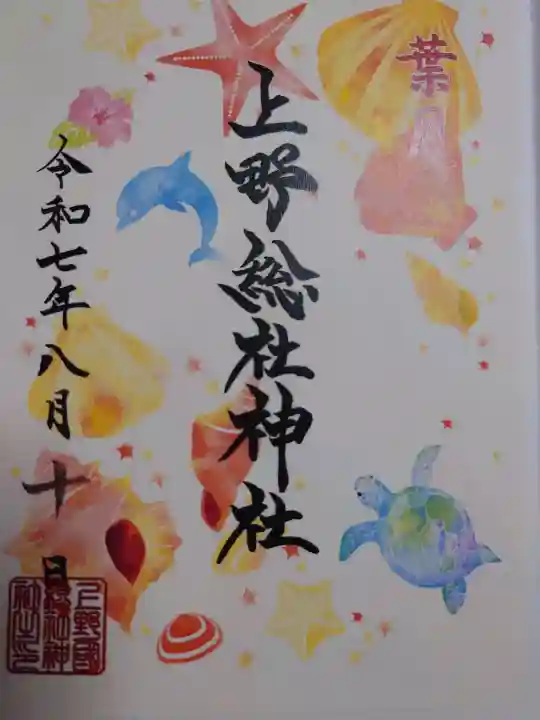 葉月
上野総社神社
令和七年八月十日